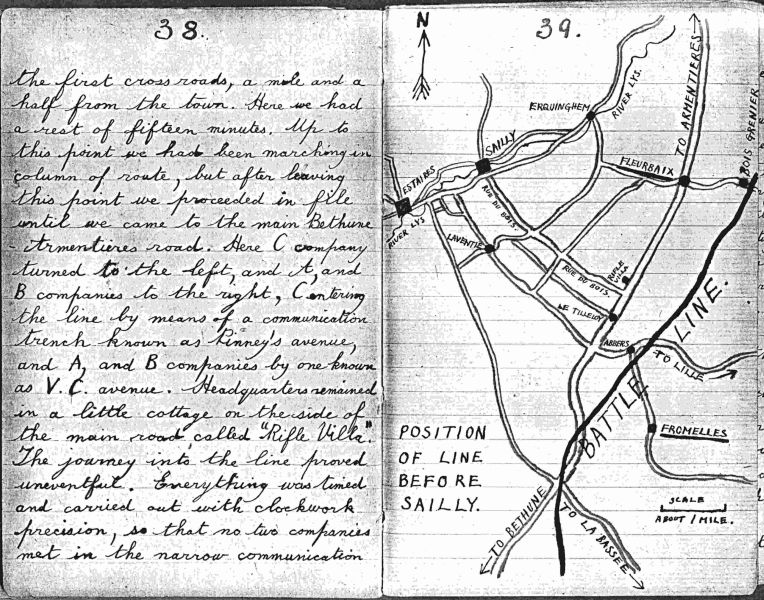 38.
the first cross roads, a mile and a
half from the town. Here we had
a rest of fifteen minutes. Up to
this point we had been marching in
column of route, but after leaving
this point we proceeded in file
until we came to the main Bethune
- Armentieres road. Here C company
turned to the left, and A, and
B companies to the right, C entering
the line by means of a communication
trench known as Pinney's avenue,
and A, and B companies by one known
as V.C. avenue. Headquarters remained
in a little cottage on the side of
the main road, called "Rifle Villa".
The journey into the line proved
uneventful. Everything was timed
and carried out with clockwork
precision, so that no two companies
met in the narrow communication
39.
N
ERQUINGHEM
RIVER LYS.
TO ARMENTIERES
BOIS GRENIER
SAILLY
FLEURBAIX
ESTAIRES
RIVER LYS
RUE DU BOIS.
LAVENTIE
RUE DU BOIS.
RIFLE
VILLA
LE TILLELOY
AUBERS
TO LILLE
BATTLE LINE.
FROMELLES
POSITION
OF LINE
BEFORE
SAILLY.
SCALE
ABOUT 1 MILE.
TO BETHUNE
TO LA BASSEE